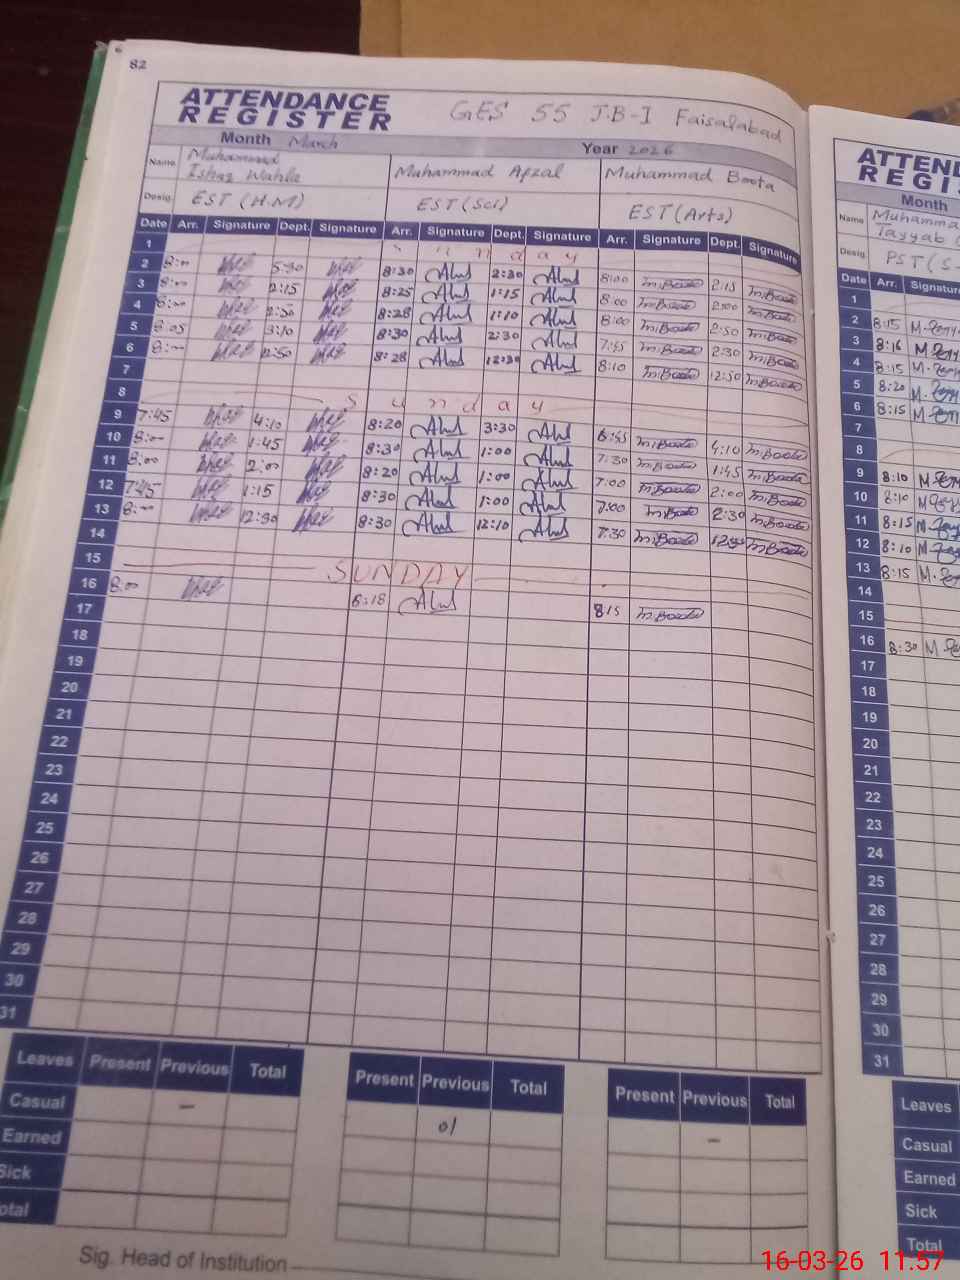 82
ATTENDANCE REGISTER GES 55 J.B-I Faisalabad
Month March Year 2026
Name Muhammad Ishaq Wahla Muhammad Afzal Muhammad Boota
Desig. EST (H.M) EST (Sci) EST (Arts)
Date Arr. Signature Dept. Signature Arr. Signature Dept. Signature Arr. Signature Dept. Signature
1 S u n d a y
2 8:00 5:30 8:30 2:30 8:00 M.Boota 2:15 M.Boota
3 8:00 2:15 8:25 1:15 8:00 M.Boota 2:00 M.Boota
4 8:00 2:50 8:28 1:10 8:00 M.Boota 2:50 M.Boota
5 8:05 3:10 8:30 2:30 7:45 M.Boota 2:30 M.Boota
6 8:00 12:50 8:28 12:30 8:10 M.Boota 12:50 M.Boota
7
8 S u n d a y
9 7:45 4:10 8:20 3:30 M.Boota 4:10 M.Boota
10 8:00 1:45 8:30 1:00 7:30 M.Boota 1:45 M.Boota
11 8:00 2:00 8:20 1:00 7:00 M.Boota 2:00 M.Boota
12 7:45 1:15 8:30 1:00 7:00 M.Boota 2:30 M.Boota
13 8:00 12:30 8:30 12:10 7:30 M.Boota M.Boota
14
15 SUNDAY
16 8:00 8:18 8:15 M.Boota
17
18
19
20
21
22
23
24
25
26
27
28
29
30
31
Leaves Present Previous Total Present Previous Total Present Previous Total
Casual – 01 –
Earned
Sick
Total
Sig. Head of Institution
ATTEND
REGIS
Month
Name Muhamma
Tayyab
Desig. PST (S-
Date Arr. Signature
1
2 8:15
3 8:16
4 8:15
5 8:20
6 8:15
7
8
9 8:10
10 8:10
11 8:15
12 8:10
13 8:15
14
15
16 8:30
17
18
19
20
21
22
23
24
25
26
27
28
29
30
31
Leaves
Casual
Earned
Sick
Total
16-03-26 11.57